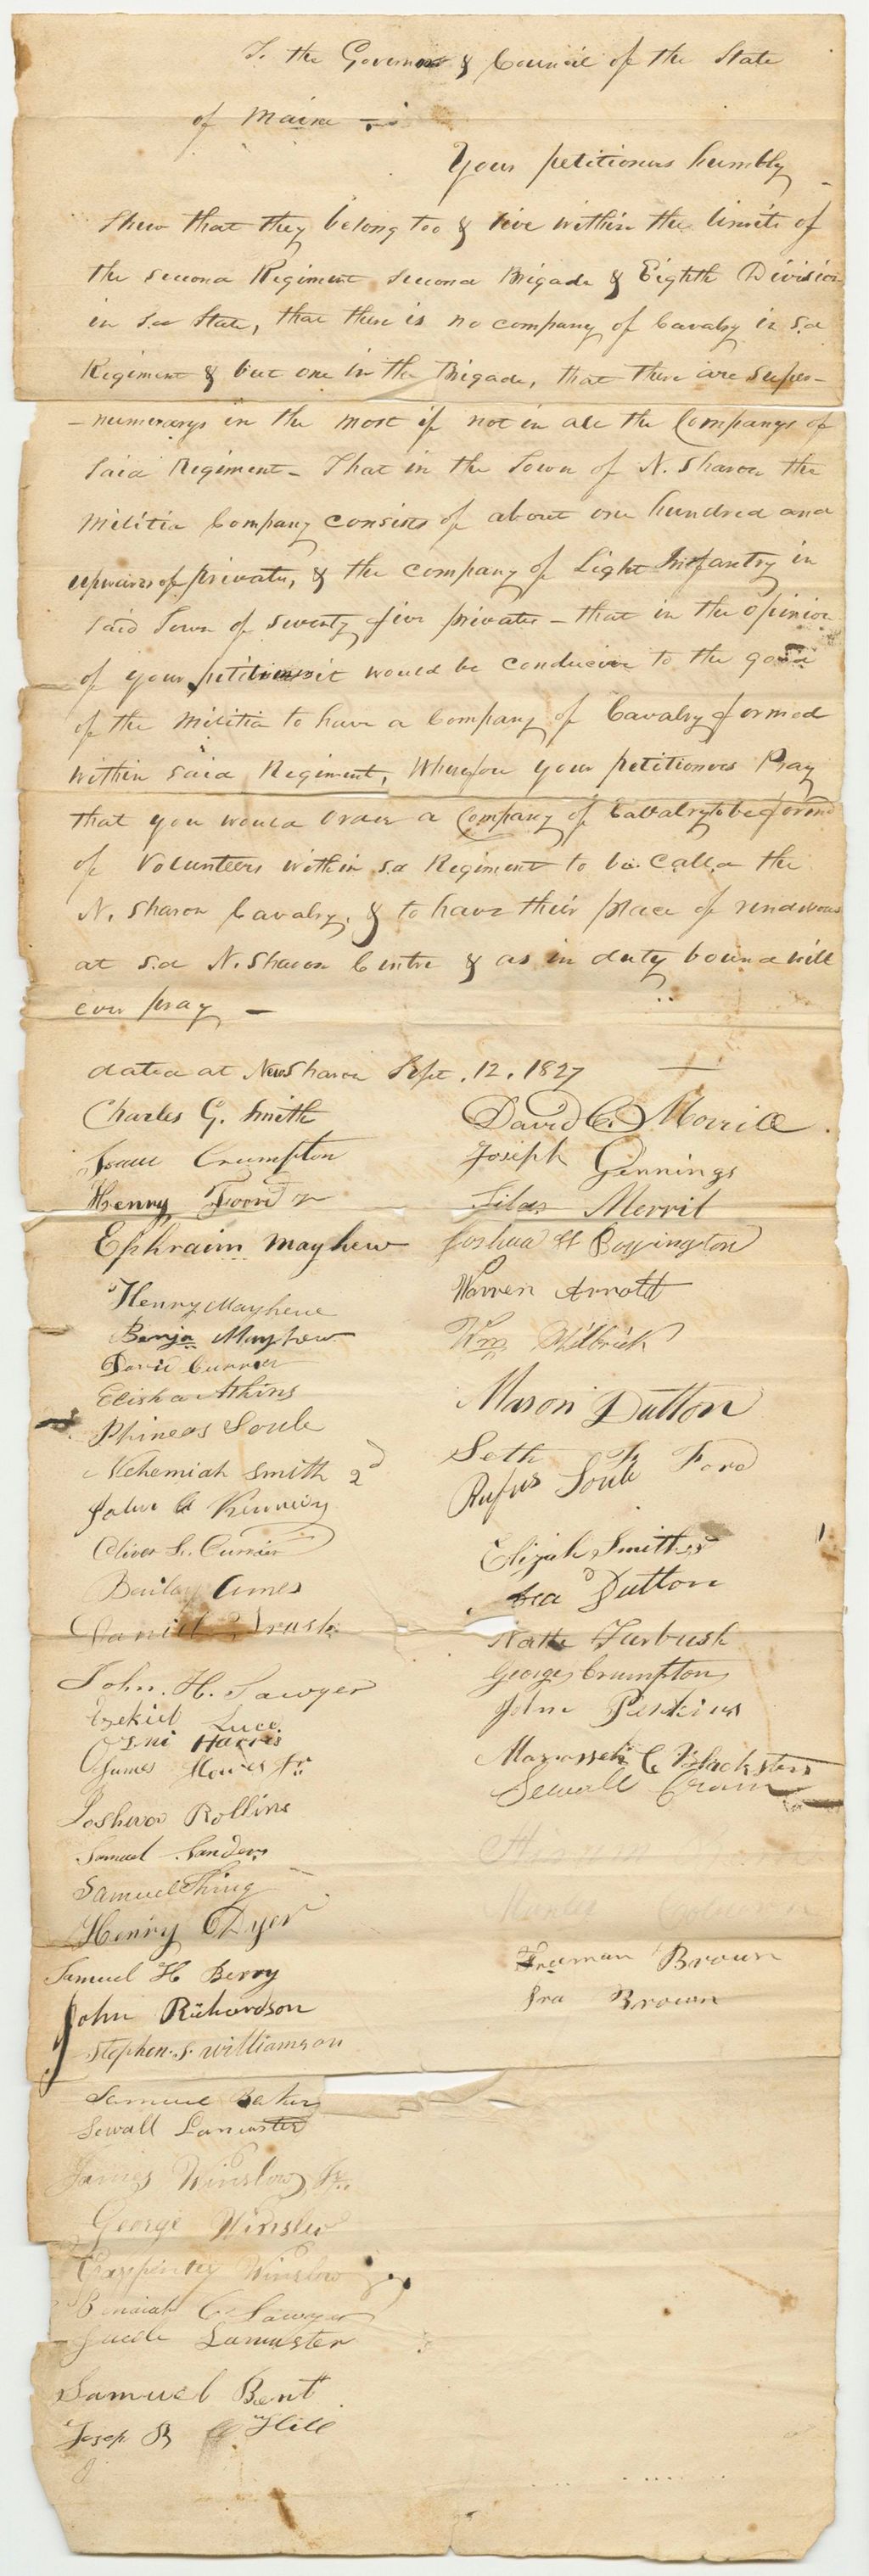 To the Governor & Council of the State
of Maine
Your petitioners humbly
Shew that they belong too & live within the limits of
the second Regiment second Brigade & Eighth Division
in sd State, that there is no company of Cavalry in sd
Regiment & but one in the Brigade, that there are super-
-numerarys in the most if not in all the Companys of
said Regiment - That in the Town of N. Sharon the
Militia Company consists of about one hundred and
upwards of privates, & the company of Light Infantry in
said Town of seventy five privates - that in the opinion
of your petitioners it would be conducive to the good
of the Militia to have a Company of Cavalry formed
within said Regiment, Wherefore your petitioners Pray
that you would order a Company of Cavalry to be formd
of Volunteers within sd Regiment to be calld the
N. Sharon Cavalry, & to have their place of rendevous
at sd N. Sharon Centre & as in duty bound will
ever pray -
dated at New Sharon Sept. 12. 1827
Charles G. Smith
David C. Morrill
Isaac Crumpton
Joseph Gennings
Henry
Silas Merril
Ephraim Mayhew
Joshua Boyington
Henry Mayhew
Warren Arnold
Benja Mayhew
Wm Philbrick
David Currier
Elisha Atkins
Mason Dutton
Phineas Soule
Seth Ford
Nehemiah Smith 2d
Rufus Soule
John Kennedy
Oliver S. Currier
Elijah Smith
Bailey Ames
Asa Dutton
Daniel Trask
Nath Furbush
George Crumpton
John H. Sawyer
John Perkins
Ezekiel Luce
Harris
Manasseh C Blackstone
James Howes Jr
Sewall Cram
Joshua Rollins
Samuel Sanders
Hiram
Samuel Thing
Henry Dyer
Freeman Brown
Samuel H Berry
Ira Brown
John Richardson
Stephen S. Williamson
Samuel Baker
Sewall Lancaster
James Winslow Jr.
George Winslow
Carpenter Winslow
Benaiah C Sawyer
Jacob Lancaster
Samuel Bent
Joseph Hill